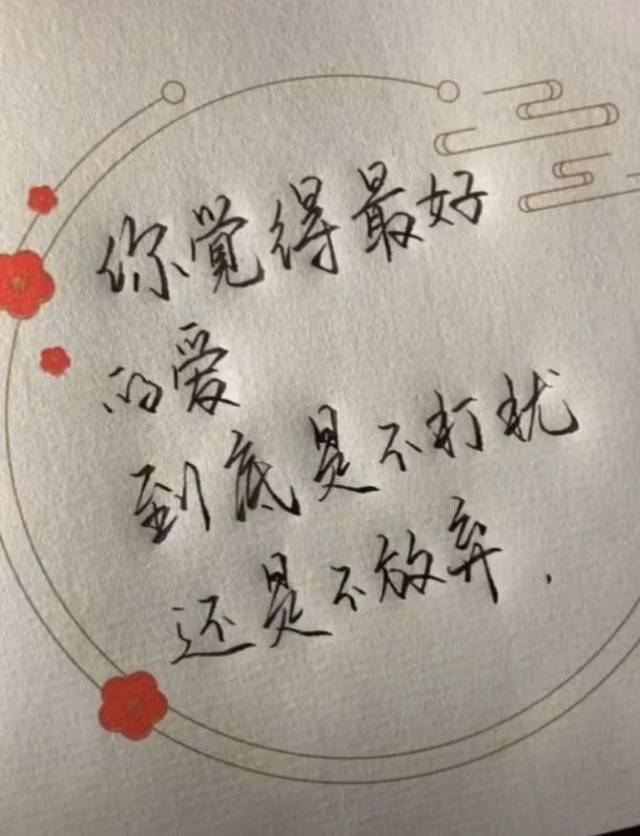 你觉得最好
的爱
到底是不打扰
还是不放弃.